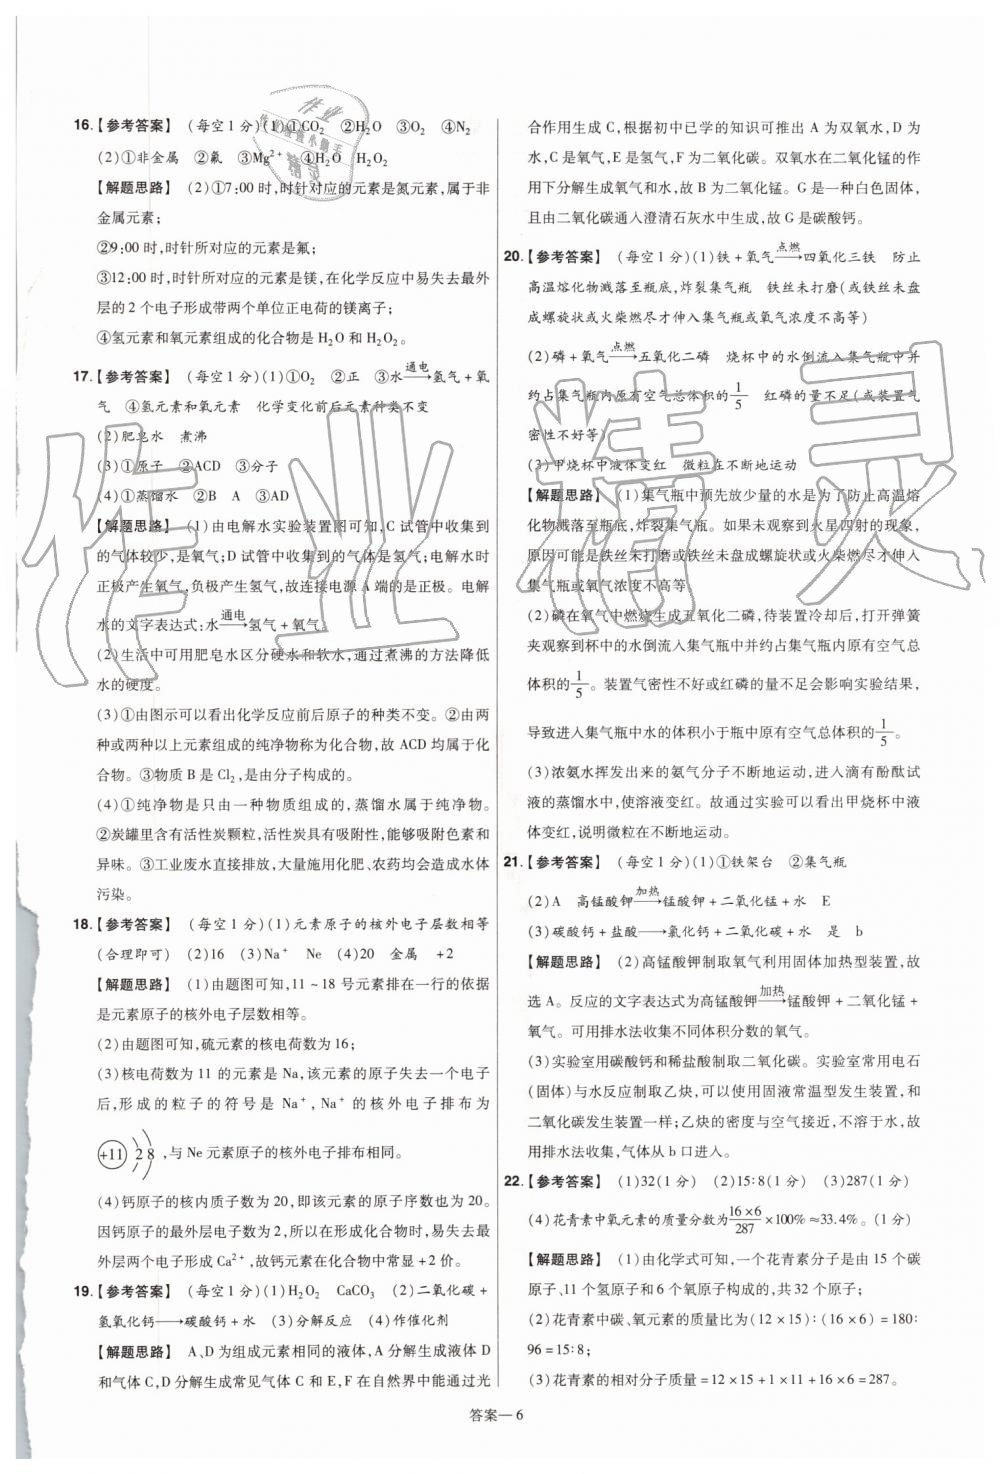 16.【参考答案】 (每空1分)(1)①CO₂ ②H₂O ③O₂ ④N₂
(2)①非金属 ②氟 ③Mg²⁺ ④H₂O H₂O₂
【解题思路】 (2)①7:00时,时针对应的元素是氮元素,属于非
金属元素;
②9:00时,时针所对应的元素是氟;
③12:00时,时针所对应的元素是镁,在化学反应中易失去最外
层的2个电子形成带两个单位正电荷的镁离子;
④氢元素和氧元素组成的化合物是H₂O和H₂O₂。
17.【参考答案】 (每空1分)(1)①O₂ ②正 ③水 通电→ 氢气+氧
气 ④氢元素和氧元素 化学变化前后元素种类不变
(2)肥皂水 煮沸
(3)①原子 ②ACD ③分子
(4)①蒸馏水 ②B A ③AD
【解题思路】 (1)由电解水实验装置图可知,C试管中收集到
的气体较少,是氧气;D试管中收集到的气体是氢气;电解水时
正极产生氧气,负极产生氢气,故连接电源A端的是正极。电解
水的文字表达式:水 通电→ 氢气+氧气。
(2)生活中可用肥皂水区分硬水和软水,通过煮沸的方法降低
水的硬度。
(3)①由图示可以看出化学反应前后原子的种类不变。②由两
种或两种以上元素组成的纯净物称为化合物,故ACD均属于化
合物。③物质B是Cl₂,是由分子构成的。
(4)①纯净物是只由一种物质组成的,蒸馏水属于纯净物。
②炭罐里含有活性炭颗粒,活性炭具有吸附性,能够吸附色素和
异味。③工业废水直接排放,大量施用化肥、农药均会造成水体
污染。
18.【参考答案】 (每空1分)(1)元素原子的核外电子层数相等
(合理即可) (2)16 (3)Na⁺ Ne (4)20 金属 +2
【解题思路】 (1)由题图可知,11~18号元素排在一行的依据
是元素原子的核外电子层数相等。
(2)由题图可知,硫元素的核电荷数为16;
(3)核电荷数为11的元素是Na,该元素的原子失去一个电子
后,形成的粒子的符号是Na⁺,Na⁺的核外电子排布为
+11 2 8,与Ne元素原子的核外电子排布相同。
(4)钙原子的核内质子数为20,即该元素的原子序数也为20。
因钙原子的最外层电子数为2,所以在形成化合物时,易失去最
外层两个电子形成Ca²⁺,故钙元素在化合物中常显+2价。
19.【参考答案】 (每空1分)(1)H₂O₂ CaCO₃ (2)二氧化碳+
氢氧化钙→碳酸钙+水 (3)分解反应 (4)作催化剂
【解题思路】 A、D为组成元素相同的液体,A分解生成液体D
和气体C,D分解生成常见气体C和E,F在自然界中能通过光
合作用生成C,根据初中已学的知识可推出A为双氧水,D为
水,C是氧气,E是氢气,F为二氧化碳。双氧水在二氧化锰的作
用下分解生成氧气和水,故B为二氧化锰。G是一种白色固体,
且由二氧化碳通入澄清石灰水中生成,故G是碳酸钙。
20.【参考答案】 (每空1分)(1)铁+氧气 点燃→ 四氧化三铁 防止
高温熔化物溅落至瓶底,炸裂集气瓶 铁丝未打磨(或铁丝未盘
成螺旋状或火柴燃尽才伸入集气瓶或氧气浓度不高等)
(2)磷+氧气 点燃→ 五氧化二磷 烧杯中的水倒流入集气瓶中并
约占集气瓶内原有空气总体积的1/5 红磷的量不足(或装置气
密性不好等)
(3)甲烧杯中液体变红 微粒在不断地运动
【解题思路】 (1)集气瓶中预先放少量的水是为了防止高温熔
化物溅落至瓶底,炸裂集气瓶。如果未观察到火星四射的现象,
原因可能是铁丝未打磨或铁丝未盘成螺旋状或火柴燃尽才伸入
集气瓶或氧气浓度不高等。
(2)磷在氧气中燃烧生成五氧化二磷,待装置冷却后,打开弹簧
夹观察到杯中的水倒流入集气瓶中并约占集气瓶内原有空气总
体积的1/5。装置气密性不好或红磷的量不足会影响实验结果,
导致进入集气瓶中水的体积小于瓶中原有空气总体积的1/5。
(3)浓氨水挥发出来的氨气分子不断地运动,进入滴有酚酞试
液的蒸馏水中,使溶液变红。故通过实验可以看出甲烧杯中液
体变红,说明微粒在不断地运动。
21.【参考答案】 (每空1分)(1)①铁架台 ②集气瓶
(2)A 高锰酸钾 加热→ 锰酸钾+二氧化锰+水 E
(3)碳酸钙+盐酸→氯化钙+二氧化碳+水 是 b
【解题思路】 (2)高锰酸钾制取氧气利用固体加热型装置,故
选A。反应的文字表达式为高锰酸钾 加热→ 锰酸钾+二氧化锰+
氧气。可用排水法收集不同体积分数的氧气。
(3)实验室用碳酸钙和稀盐酸制取二氧化碳。实验室常用电石
(固体)与水反应制取乙炔,可以使用固液常温型发生装置,和
二氧化碳发生装置一样;乙炔的密度与空气接近,不溶于水,故
用排水法收集,气体从b口进入。
22.【参考答案】 (1)32(1分) (2)15:8(1分) (3)287(1分)
(4)花青素中氧元素的质量分数为16×6/287×100%≈33.4%。(1分)
【解题思路】 (1)由化学式可知,一个花青素分子是由15个碳
原子、11个氢原子和6个氧原子构成的,共32个原子;
(2)花青素中碳、氧元素的质量比为(12×15):(16×6)=180:
96=15:8;
(3)花青素的相对分子质量=12×15+1×11+16×6=287。
答案—6
作业精灵